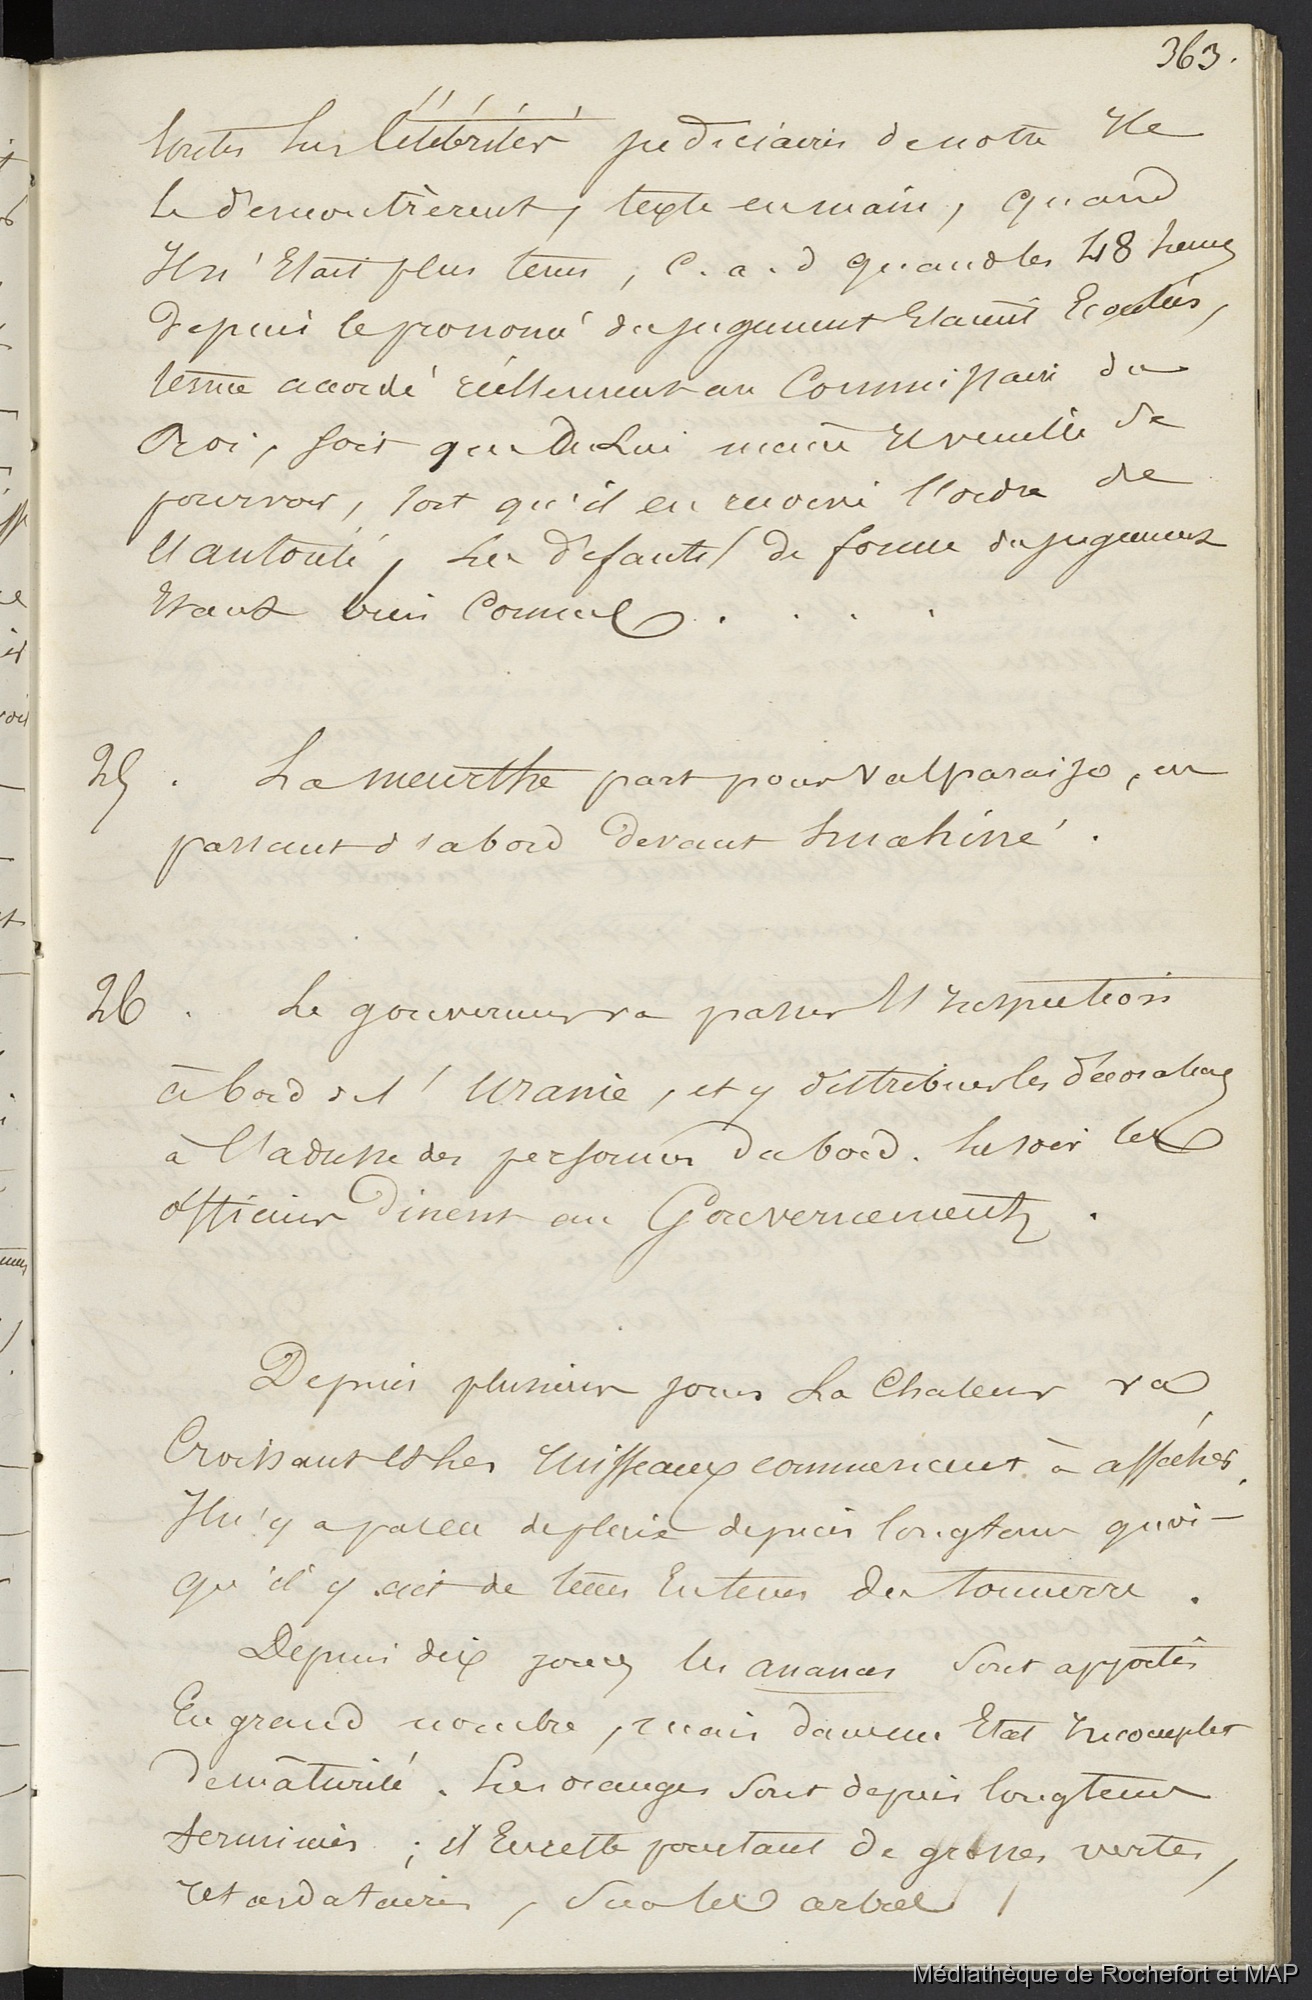 363.
toutes les Célébrités judiciaires de notre Ile
le démontrèrent, texte en main, quand
Il n'Etait plus tems, c. a. d quand les 48 heures
depuis le prononcé du jugement Etaient Ecoulées,
terme accordé réellement au Commissaire du
Roi, soit que de Lui même Il veuille se
pourvoir, soit qu'il en reçoive l'ordre de
l'autorité, Les défauts de forme du jugement
Etant bien Connus . . . .
25. La meurthe part pour Valparaiso, en
passant d'abord devant huahiné.
26. Le gouverneur va passer l'Inspection
à bord de l'Uranie, et y distribuer les décorations
à l'adresse des personnes du bord. Le soir les
officiers dinent au Gouvernement.
Depuis plusieurs jours La Chaleur va
Croissant et Les ruisseaux commencent à assécher.
Il n'y a pas eu de pluie depuis longtems quoi-
qu'il y ait de tems En tems du tonnerre.
Depuis dix jours les ananas sont apportés
En grand nombre, mais dans un Etat Incomplet
de maturité. Les oranges sont depuis longtems
terminées; il En reste pourtant de grosses vertes,
retardataires, sur les arbres
Médiathèque de Rochefort et MAP